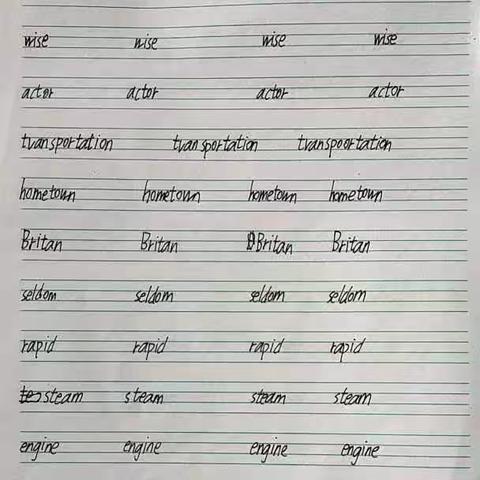 wise wise wise wise
actor actor actor actor
transportation transportation transpoortation
hometown hometown hometown hometown
Britan Britan Britan Britan
seldom seldom seldom seldom
rapid rapid rapid rapid
steam steam steam steam
engine engine engine engine